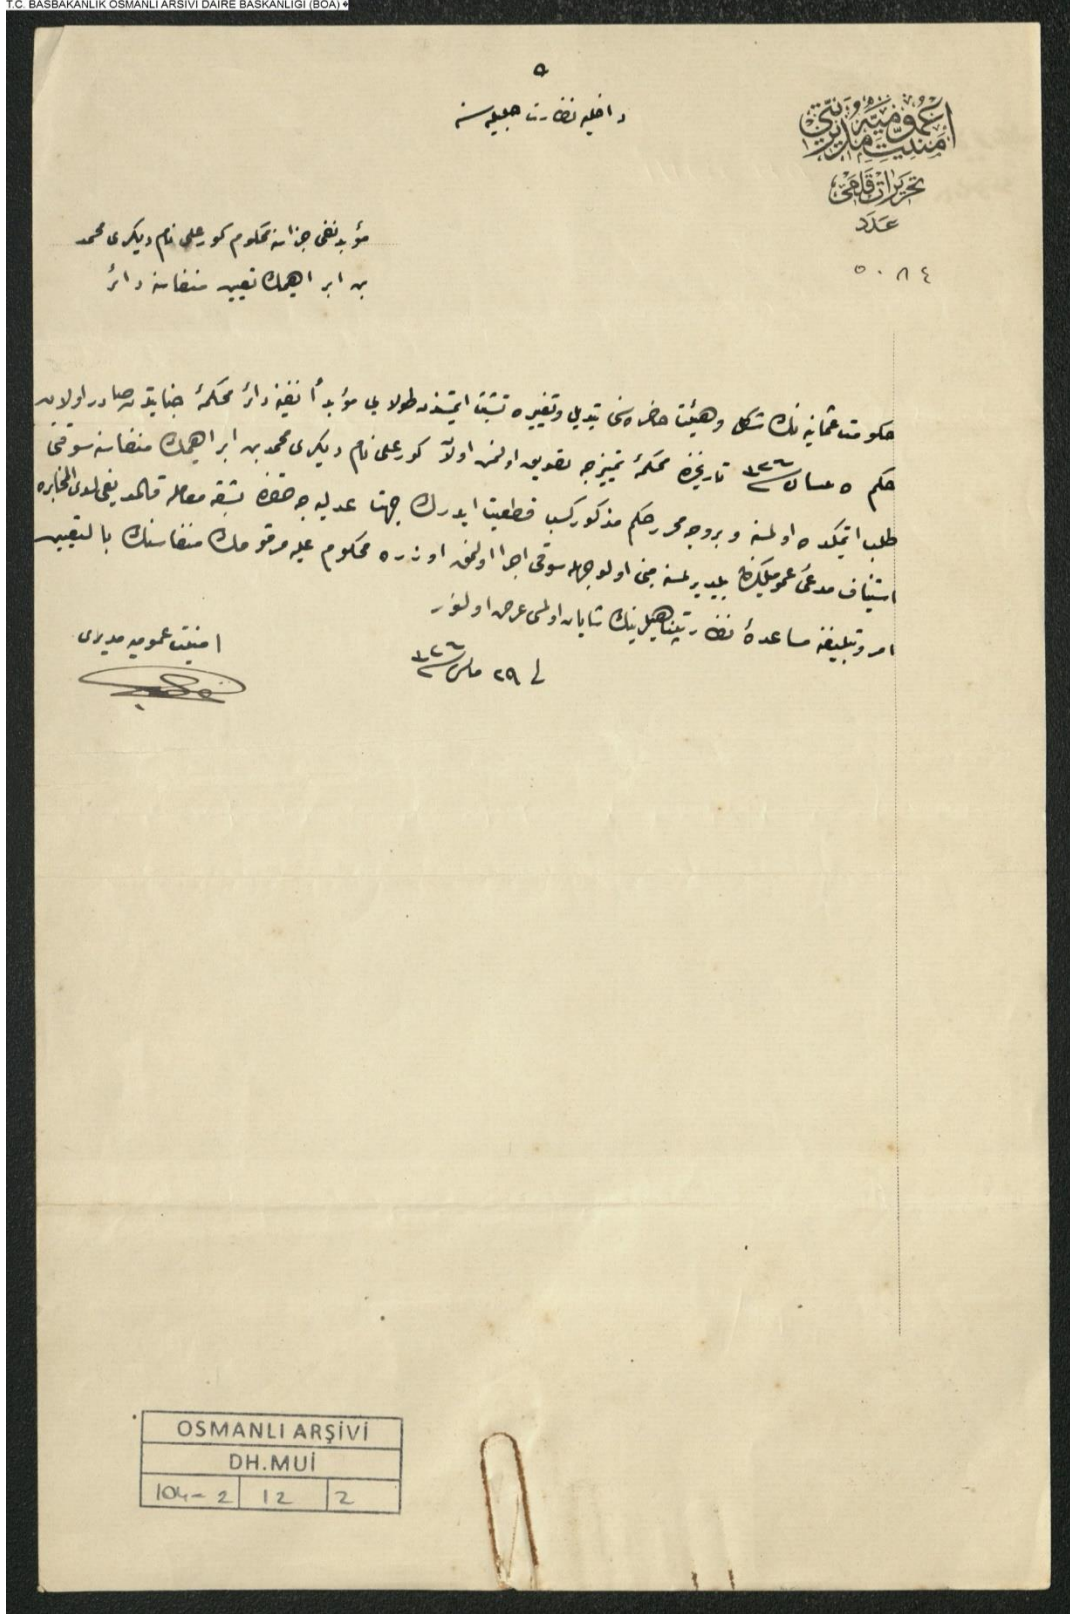 T.C. BASBAKANLIK OSMANLI ARSIVI DAIRE BASKANLIGI (BOA)
امنیت عمومیه مدیریتی
تحریرات قلمی
عدد
٥٠٨٤
داخلیه نظارت جلیله سنه
مؤبد نفی جزاسنه محکوم کور علی نام دیکری محمد
بن ابراهیمك تعیین منفاسنه دائر
حکومت عثمانیه نك شکل وهیئت حاضره سنی تبدیل وتغییره تشبث ایتمسندن طولایی مؤبداً نفینه دائر محکمهٔ جنایتدن صادر اولان
حکم ٥ نیسان ٣٢٦ تاریخنده محکمهٔ تمییزجه تصدیق اولنمش اولان کور علی نام دیکری محمد بن ابراهیمك منفاسنه سوقنی
طلب ایتمکده اولمسنه و بروجه محرر حکم مذکور کسب قطعیت ایدرك جهت عدلیه جه حقنده بشقه معامله قالمدیغی لدی المخابره
استیناف مدعئ عمومیلکندن بیلدیرلمسنه مبنی اولوجهله سوقی اجرا اولنمق اوزره محکوم علیه مرقومك منفاسنك بالتعیین
امر وتبلیغنه مساعدهٔ نظارتپناهیلرینك شایان اولمسی عرض اولنور
فی ٢٩ مایس ٣٢٦
امنیت عمومیه مدیری
OSMANLI ARŞİVİ
DH.MUİ
104-2 12 2